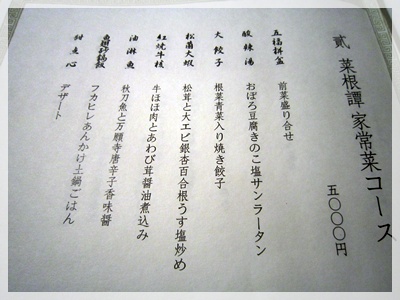 貳 菜根譚 家常菜コース
五〇〇〇円
五福拼盆
前菜盛り合せ
酸辣湯
おぼろ豆腐きのこ塩サンラータン
大餃子
根菜青菜入り焼き餃子
松茸大蝦
松茸と大エビ銀杏百合根うす塩炒め
紅焼牛枝
牛ほほ肉とあわび茸醤油煮込み
油淋魚
秋刀魚と万願寺唐辛子香味醤
魚翅砂鍋飯
フカヒレあんかけ土鍋ごはん
甜点心
デザート